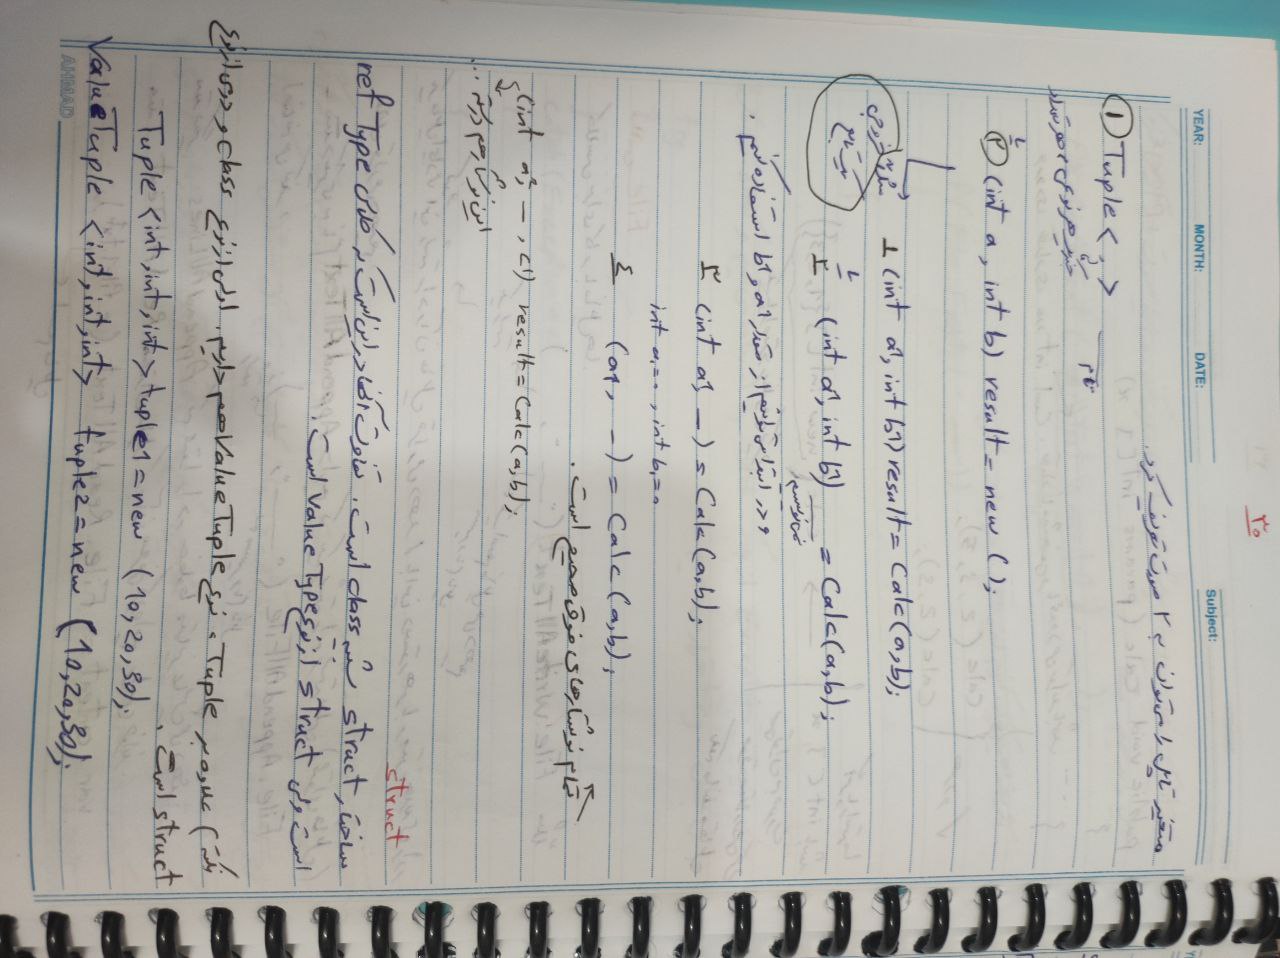 ۳۰
YEAR: MONTH: DATE: Subject:
متغیر تاپل را می‌توان به ۲ صورت تعریف کرد.
① Tuple < , > نام
هر نوعی و هر تعداد
یا
② (int a, int b) result = new ();
۱ (int a1, int b1) result = Calc(a,b);
خروجی
یک تابع
یا
۲ (int a1, int b1) = Calc(a,b);
نمی‌نویسیم
و در ابتدا می‌توانیم از مقدار a1 و b1 استفاده کنیم.
۳ (int a1, _) = Calc(a,b);
int a1=0, int b1=0
۴ (a1, _) = Calc(a,b);
تمام نوشتارهای فوق صحیح است.
(int a1, _, c1) result = Calc(a,b);
این نوشتار هم درسته ...
struct
ساختار struct شبیه class است. تفاوت آنها در این است که کلاس ref Type
است ولی struct از نوع Value Type است.
نکته) علاوه بر Tuple، نوع ValueTuple هم داریم. اولی از نوع class و دومی از نوع
struct است.
Tuple <int,int,int> tuple1 = new (10,20,30);
ValueTuple <int,int,int> tuple2 = new (10,20,30);
AHMAD